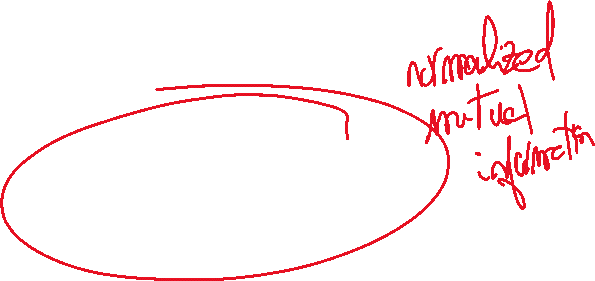 normalized
mutual
information